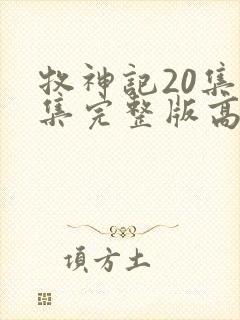 牧神記20集
集完整版高
項方土